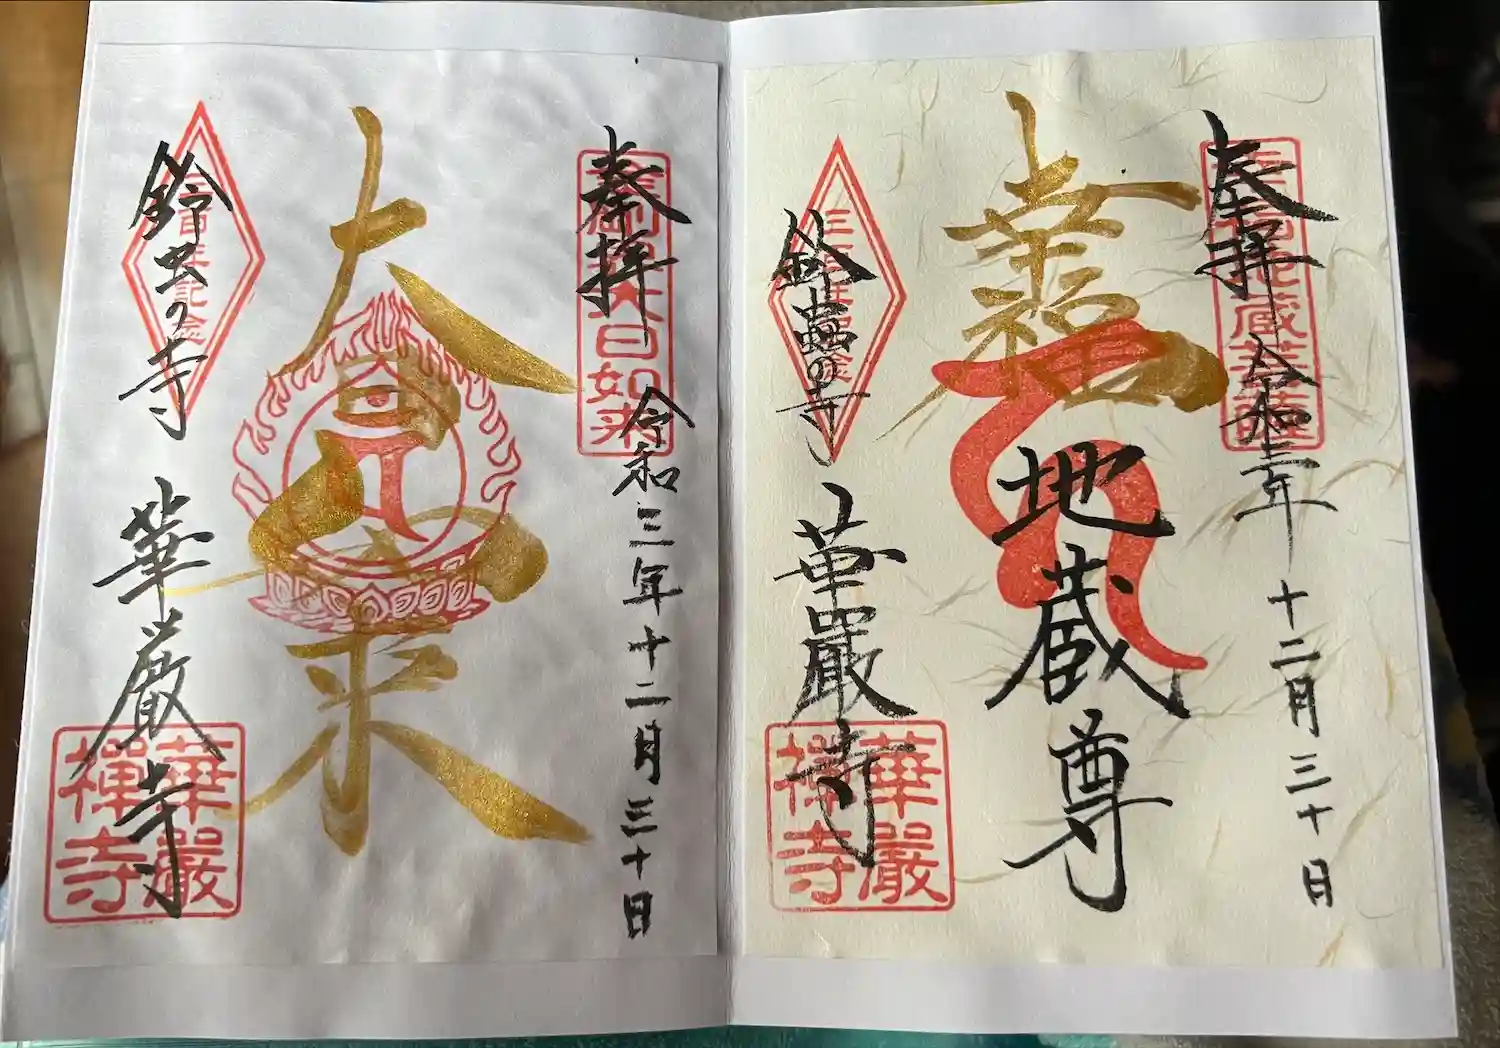 奉拝
令和三年十二月三十日
大日如来
鈴虫の寺
華厳寺
大日如来
三百年記念
華嚴禅寺
奉拝
令和三年
十二月三十日
幸福
地蔵尊
鈴蟲の寺
華嚴寺
華嚴禅寺